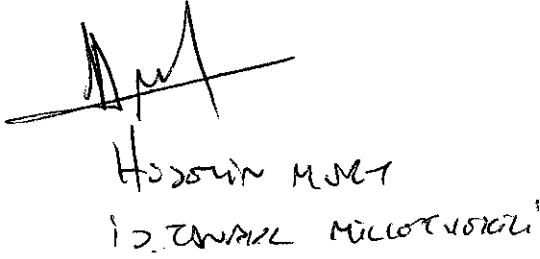 Hüseyin Mert
İstanbul Milletvekili